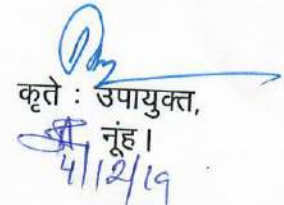 कृते : उपायुक्त,
नूंह।
4/12/19